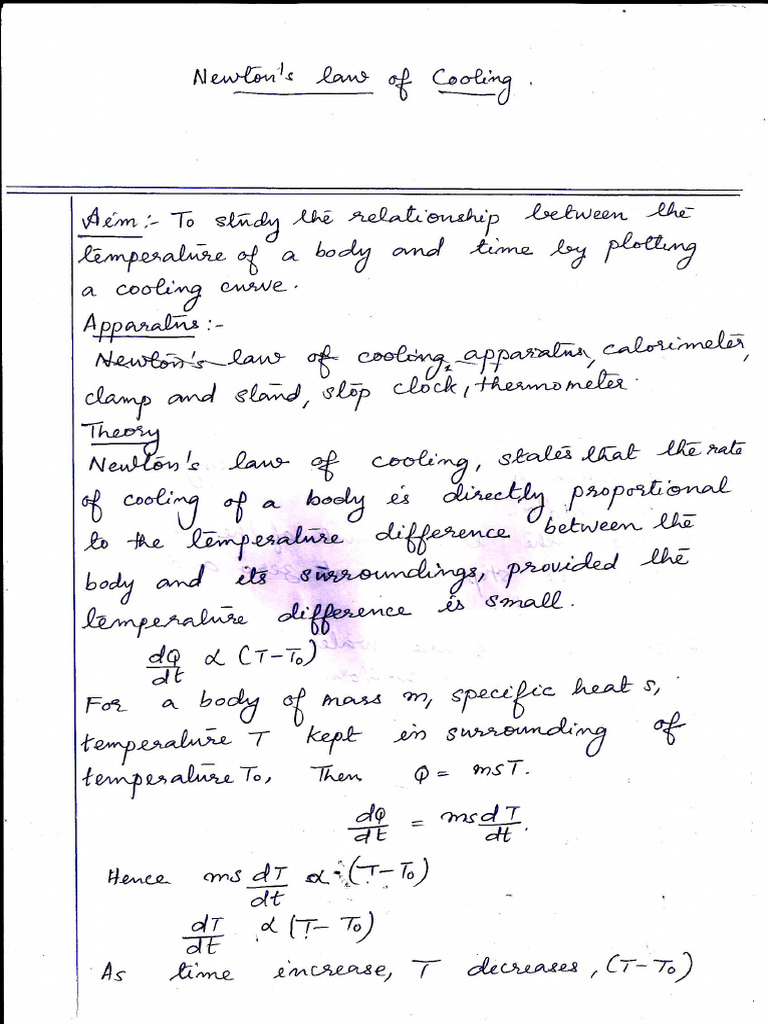 Newton's law of Cooling.
Aim:- To study the relationship between the
temperature of a body and time by plotting
a cooling curve.
Apparatus:-
Newton's law of cooling, apparatus, calorimeter,
clamp and stand, stop clock, thermometer.
Theory
Newton's law of cooling, states that the rate
of cooling of a body is directly proportional
to the temperature difference between the
body and its surroundings, provided the
temperature difference is small.
dQ/dt ∝ (T-T₀)
For a body of mass m, specific heat s,
temperature T kept in surrounding of
temperature T₀, Then Q = msT.
dQ/dt = ms dT/dt.
Hence ms dT/dt ∝ (T-T₀)
dT/dt ∝ (T-T₀)
As time increase, T decreases, (T-T₀)